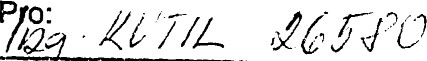 Pro:
Ing. KUTIL 26580